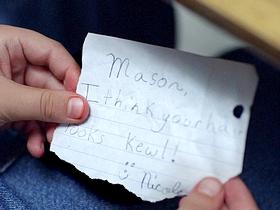 Mason,
I think your hair
looks Kewl!
Nicole